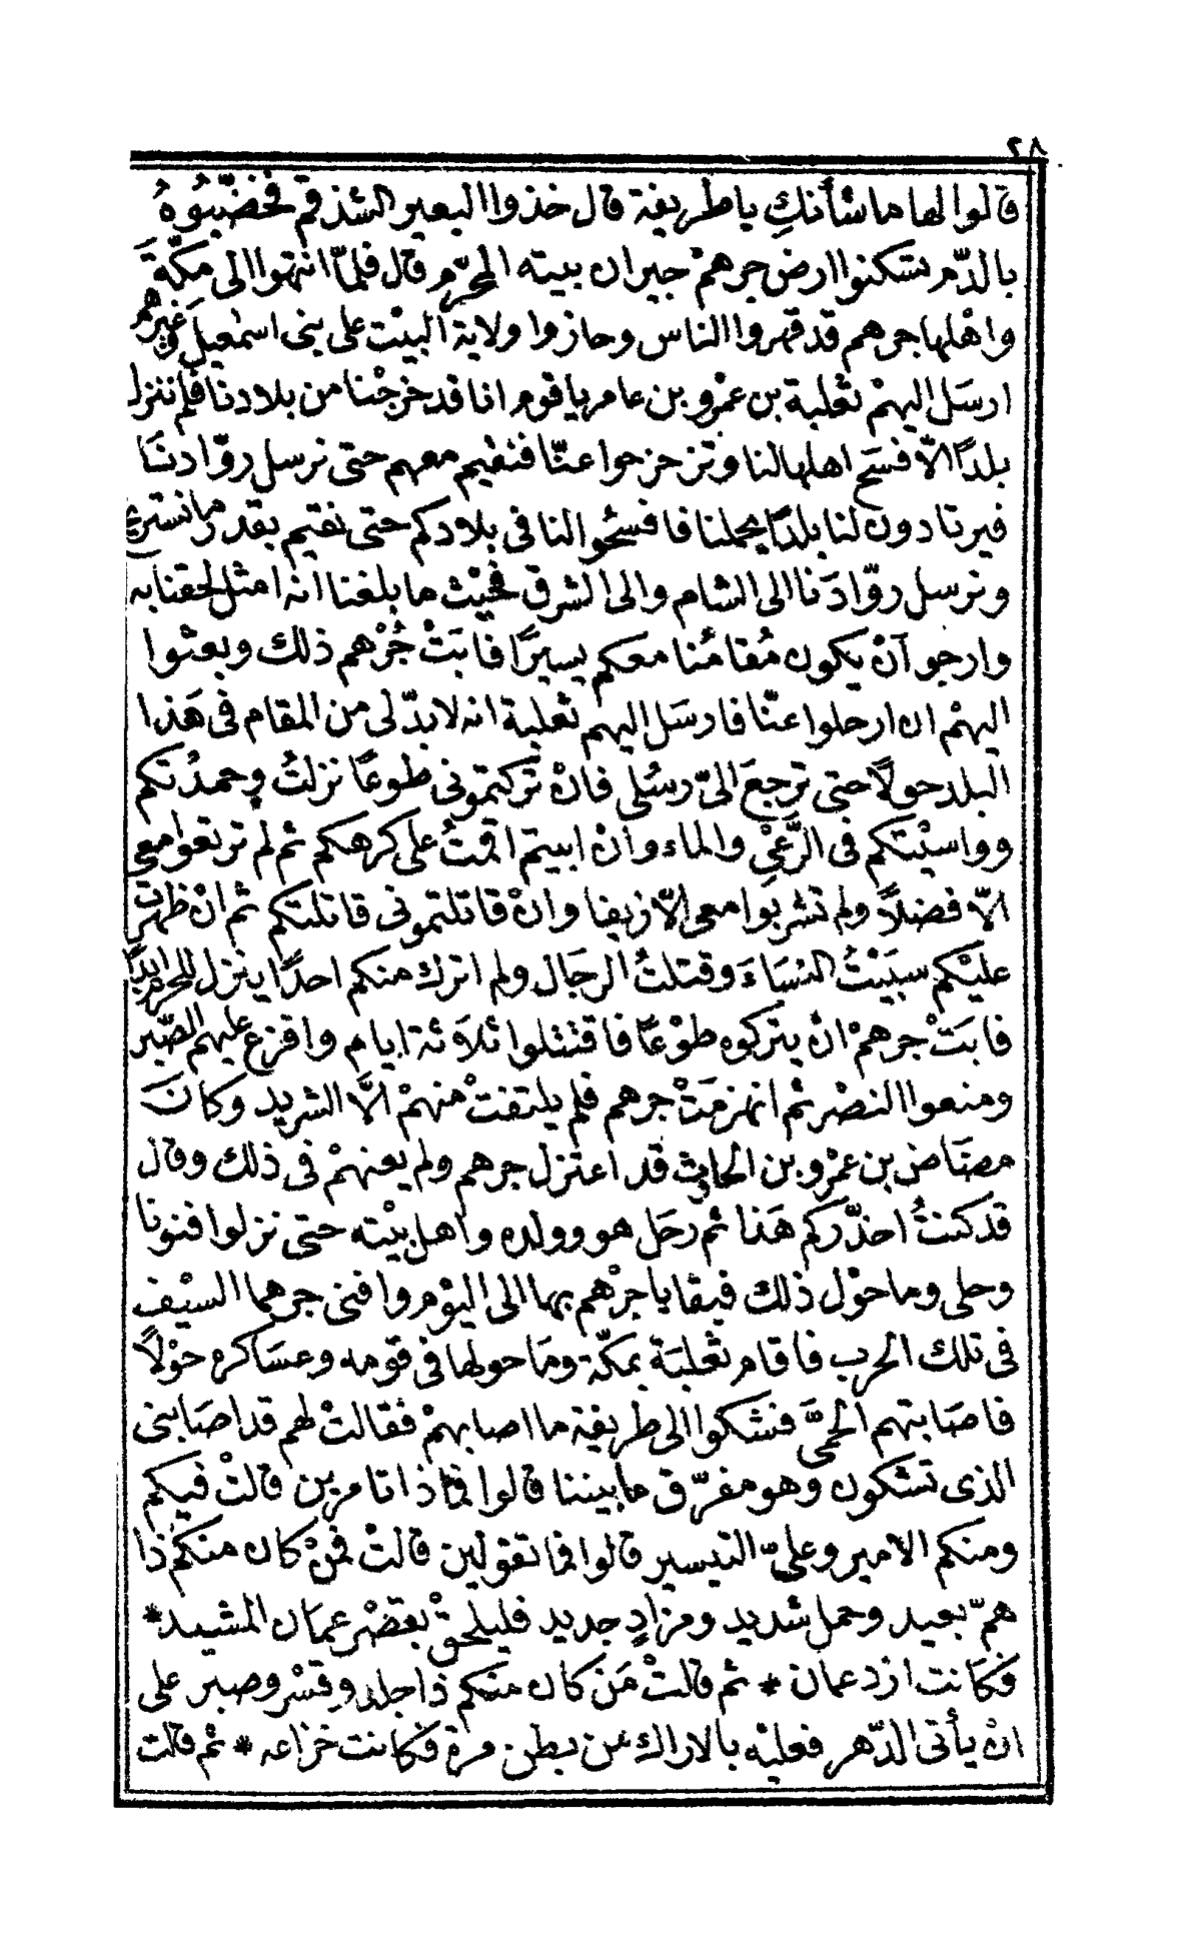 ٢٨
قالوا لها ما شأنكِ يا طريفة قال خذوا البعير الشذقم فخضّبُوهُ
بالدّم تسكنوا ارض جرهمْ جيران بيته المحرّم قال فلمّا انتهوا الى مكّةَ
واهْلها جرهم قد قهروا الناس وحازوا ولاية البيْت على بنى اسمٰعيل وغيرهم
ارسَل اليهمْ ثعْلبة بن عمْرو بن عامر يا قوم انا قد خرجْنا من بلادنا فلم ننزل
بلداً الّا فسَح اهلها لنا وتزحزحوا عنّا فنقيم معهم حتى نرسل روّادنَا
فيرتادون لنا بلداً يحملنا فافسحُوا لنا فى بلادكم حتى نقيم بقدر ما نستريح
ونرسل روّادَنا الى الشام والى الشرق فحيْث ما بلغنا انه امثل لحقنا به
وارجو آنْ يكون مُقامُنا معكم يسيرًا فابَتْ جُرْهم ذلك وبعثوا
اليهْم ان ارحلوا عنّا فارسَل اليهم ثعلبة انه لا بدّ لى من المقام فى هَذا
البلد حولًا حتى ترجعَ الىّ رسُلى فانْ تركتمونى طوعًا نزلتُ وحمدْتكم
وواسيْتكم فى الرَّعْىِ والماء وانْ ابيتم اقمتُ على كرهكم ثم لم ترتعوا معى
الّا فضلاً ولم تشربوا معى الّا رنقا وانْ قاتلتمونى قاتلتكم ثم انْ ظهرت
عليْكم سبَيْتُ النسَاءَ وقتلتُ الرجَال ولم اترك منكم احدًا ينزل الحرم ابدًا
فابَتْ جرهمْ انْ يتركوه طوْعًا فاقتتلوا ثلاَثة ايام وافرغ عليهم الصّبر
ومنعوا النصْر ثم انهزمَتْ جرهم فلم يلتفتْ منهمْ الَّا الشريد وكانَ
مضاض بن عمْرو بن الحارث قد اعتزل جرهم ولم يعنهمْ فى ذلك وقال
قد كنتُ احذّركم هَذا ثم رحَل هو وولده واهل بيْته حتى نزلوا قنونا
وحلى وما حوْل ذلك فبقايا جرْهم بها الى اليوْم وافنى جرهما السيْف
فى تلك الحرب فاقام ثعْلبَة بمكّة ومَا حولها فى قومه وعسَاكره حوْلاً
فاصَابتهم الحمَّى فشكوا الى طريفة ما اصابهمْ فقالتْ لهم قد اصَابنى
الذى تشكون وهو مفرّق ما بيننا قالوا فما ذا تامرين قالتْ فيكم
ومنكم الامير وعلىّ التيسير قالوا فما تقولين قالتْ فمنْ كان منكم ذا
همّ بعيد وحمل شديد ومزادٍ جديد فليلحقْ بقصْر عمان المشيد*
فكانت ازد عمان * ثم قالتْ مَن كان منكم ذا جلد وقسْر وصبر على
انْ يأتى الدّهر فعليْه بالاراك من بطن مرة فكانت خزاعه * ثم قالت